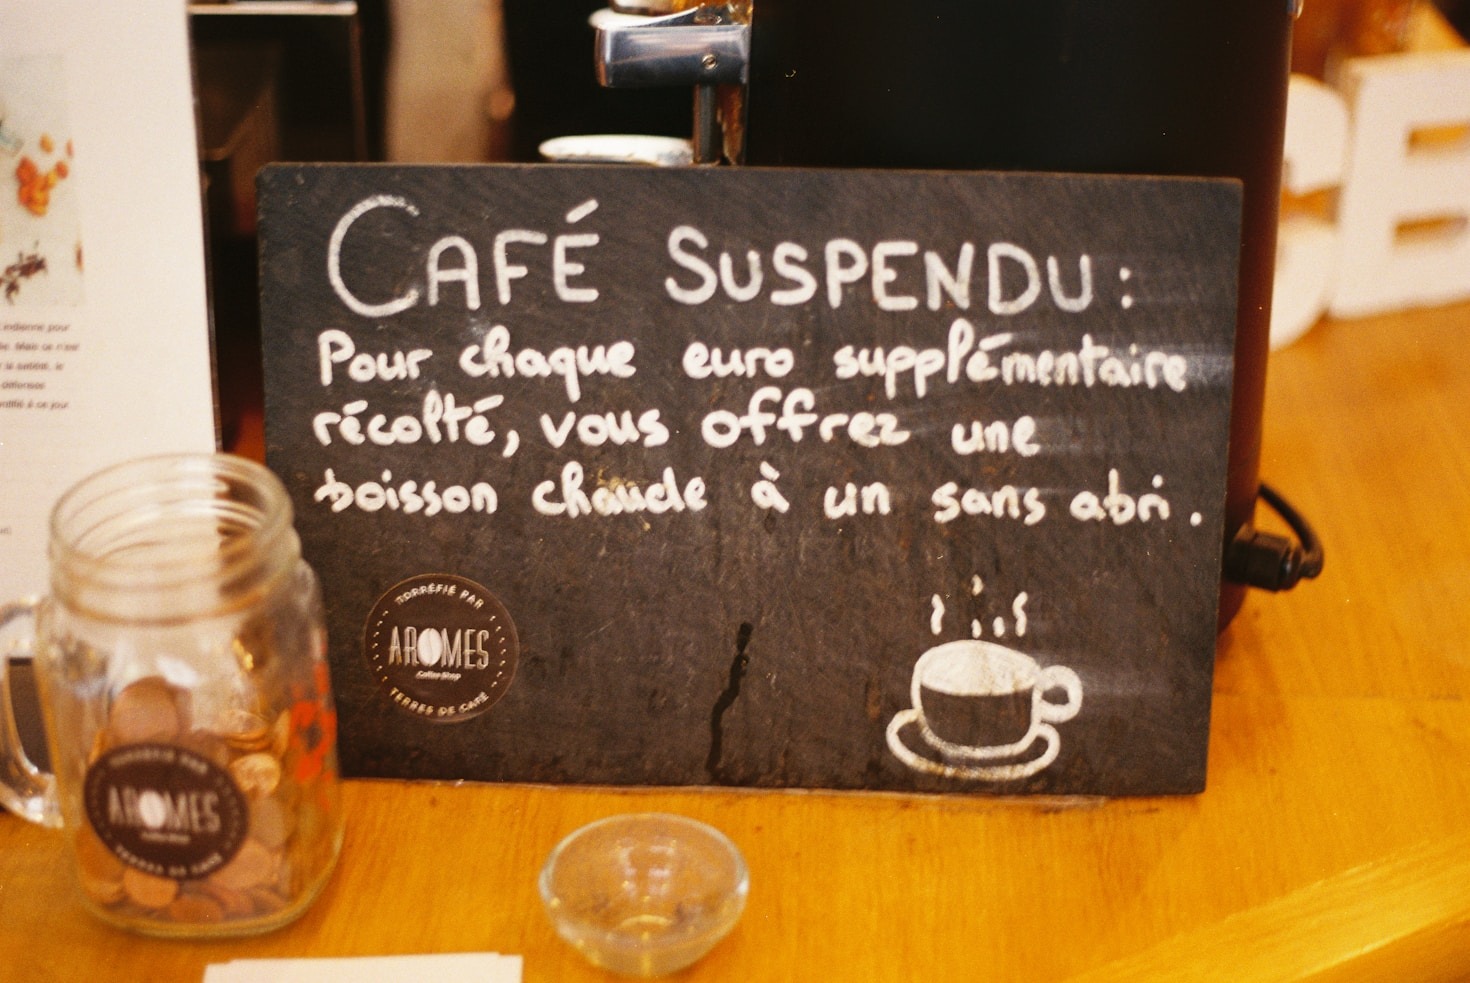 CAFÉ SUSPENDU :
Pour chaque euro supplémentaire
récolté, vous offrez une
boisson chaude à un sans abri.
TORRÉFIÉ PAR
AROMES
Coffee Shop
TERRES DE CAFÉ
TORRÉFIÉ PAR
AROMES
Coffee Shop
TERRES DE CAFÉ
indienne pour
Mais ce n'est
la satiété, le
défenses
à ce jour